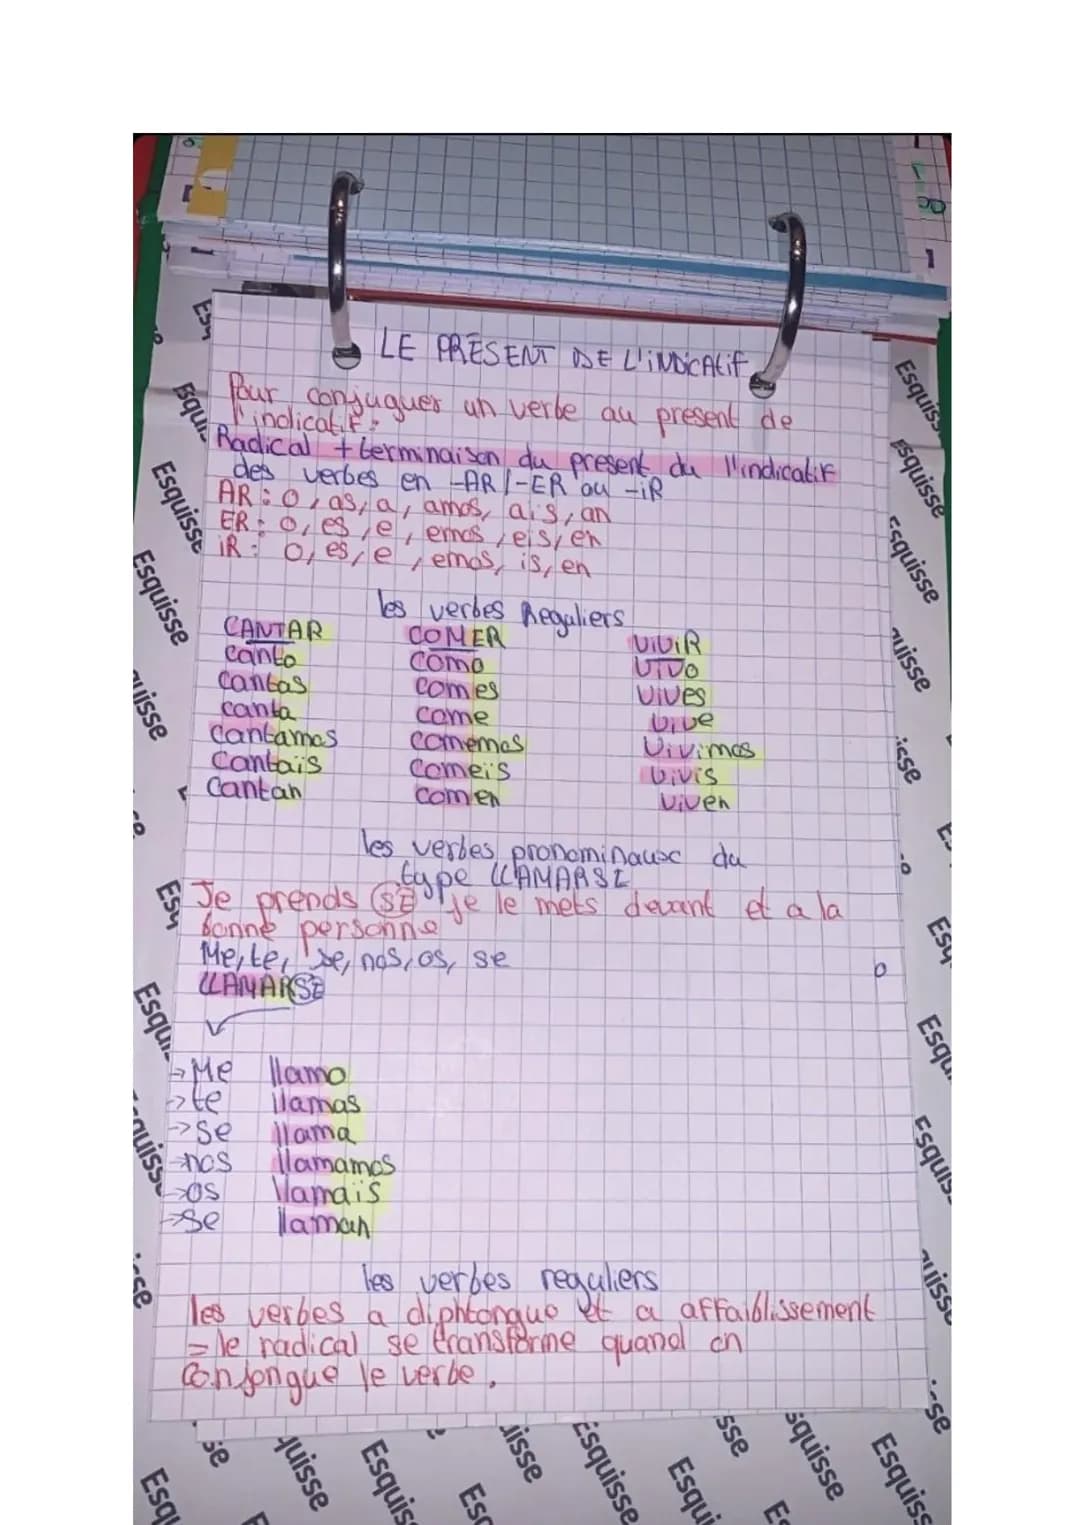 LE PRÉSENT DE L'iNDiCATiF
Pour conjuguer un verbe au present de
l'indicatif :
Radical + terminaison du present du l'indicatif
des verbes en -AR/-ER ou -iR
AR : O, as, a, amos, ais, an
ER : O, es, e, emos, eis, en
iR : O, es, e, emos, is, en
les verbes Reguliers
CANTAR COMER ViViR
canto como vivo
cantas comes vives
canta come vive
cantamos comemos vivimos
cantais comeis vivis
cantan comen viven
les verbes pronominaux du
type LLAMARSE
Je prends SE je le mets devant et a la
bonne personne
Me, te, se, nos, os, se
LLAMARSE
→ Me llamo
→ te llamas
→ se llama
→ nos llamamos
→ os llamais
→ se llaman
les verbes reguliers
les verbes a diphtongue et a affaiblissement
= le radical se transforme quand on
conjongue le verbe.
Esquisse
Esquisse
Esquisse
Esquisse